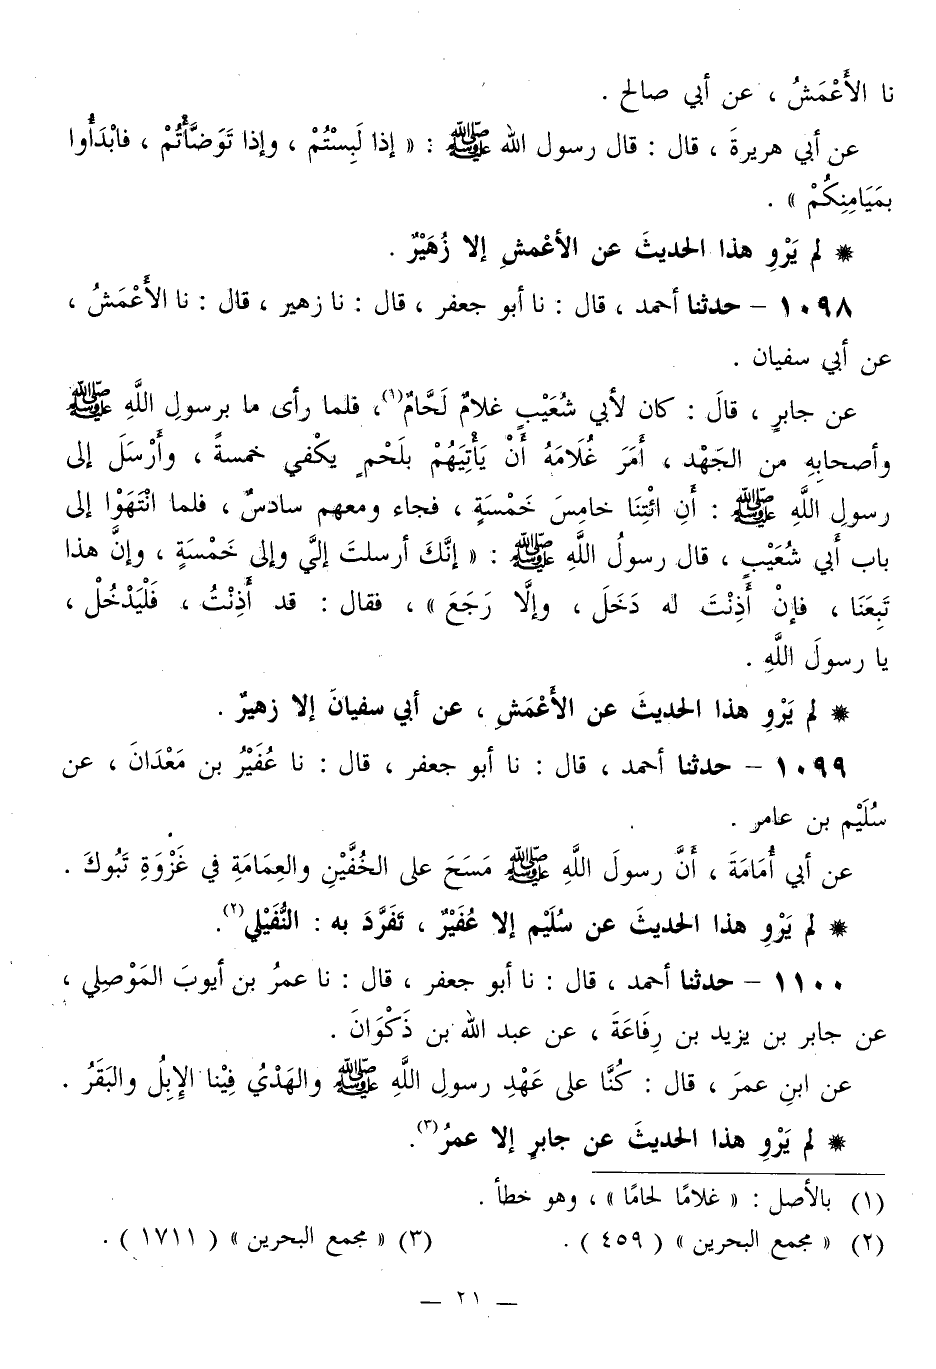 نا الأَعْمَشُ ، عن أبي صالح .
عن أبي هريرةَ ، قال : قال رسول الله ﷺ : « إذا لَبِسْتُمْ ، وإذا تَوَضَّأْتُمْ ، فابْدَأُوا
بمَيَامِنِكُمْ » .
* لم يَرْوِ هذا الحديثَ عن الأعْمشِ إلا زُهَيْرٌ .
١٠٩٨ – حدثنا أحمد ، قال : نا أبو جعفر ، قال : نا زهير ، قال : نا الأَعْمَشُ ،
عن أبي سفيان .
عن جابرٍ ، قالَ : كان لأبي شُعَيْبٍ غلامٌ لَحَّامٌ(١)، فلما رأى ما برسولِ اللَّهِ ﷺ
وأصحابِهِ من الجَهْد ، أَمَرَ غُلَامَهُ أَنْ يَأْتِيَهُمْ بلَحْمٍ يكْفي خمسةً ، وأَرْسَلَ إلى
رسولِ اللَّهِ ﷺ : أَنِ ائْتِنَا خامِسَ خَمْسَةٍ ، فجاء ومعهم سادسٌ ، فلما انْتَهَوْا إلى
باب أبي شُعَيْبٍ ، قال رسولُ اللَّهِ ﷺ : « إنَّكَ أرسلتَ إليَّ وإلى خَمْسَةٍ ، وإنَّ هذا
تَبِعَنَا ، فإنْ أَذِنْتَ له دَخَلَ ، وإلَّا رَجَعَ » ، فقال : قد أَذِنْتُ ، فَلْيَدْخُلْ ،
يا رسولَ اللَّهِ .
* لم يَرْوِ هذا الحديثَ عن الأَعْمَشِ ، عن أبي سفيانَ إلا زهيرٌ .
١٠٩٩ – حدثنا أحمد ، قال : نا أبو جعفر ، قال : نا عُفَيْرُ بن مَعْدَانَ ، عن
سُلَيْم بن عامر .
عن أبي أُمَامَةَ ، أَنَّ رسولَ اللَّهِ ﷺ مَسَحَ على الخُفَّيْنِ والعِمَامَةِ في غَزْوَةِ تَبُوكَ .
* لم يَرْوِ هذا الحديثَ عن سُلَيْم إلا عُفَيْرٌ ، تَفَرَّدَ به : النُّفَيْلي(٢).
١١٠٠ – حدثنا أحمد ، قال : نا أبو جعفر ، قال : نا عمرُ بن أيوبَ المَوْصِلي ،
عن جابر بن يزيد بن رِفَاعَةَ ، عن عبد الله بن ذَكْوَانَ .
عن ابنِ عمرَ ، قال : كُنَّا على عَهْدِ رسولِ اللَّهِ ﷺ والهَدْيُ فِيْنا الإبِلُ والبَقَرُ .
* لم يَرْوِ هذا الحديثَ عن جابرٍ إلا عمرُ(٣).
(١) بالأصل : « غلامًا لحامًا » ، وهو خطأ .
(٢) « مجمع البحرين » ( ٤٥٩ ) . (٣) « مجمع البحرين » ( ١٧١١ ) .
— ٢١ —